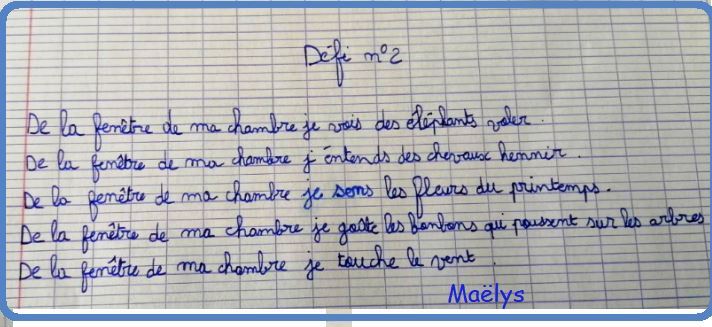 Défi n°2
De la fenêtre de ma chambre je vois des éléphants voler.
De la fenêtre de ma chambre j'entends des chevaux hennir.
De la fenêtre de ma chambre je sens les fleurs du printemps.
De la fenêtre de ma chambre je goûte les bonbons qui poussent sur les arbres
De la fenêtre de ma chambre je touche le vent.
Maëlys